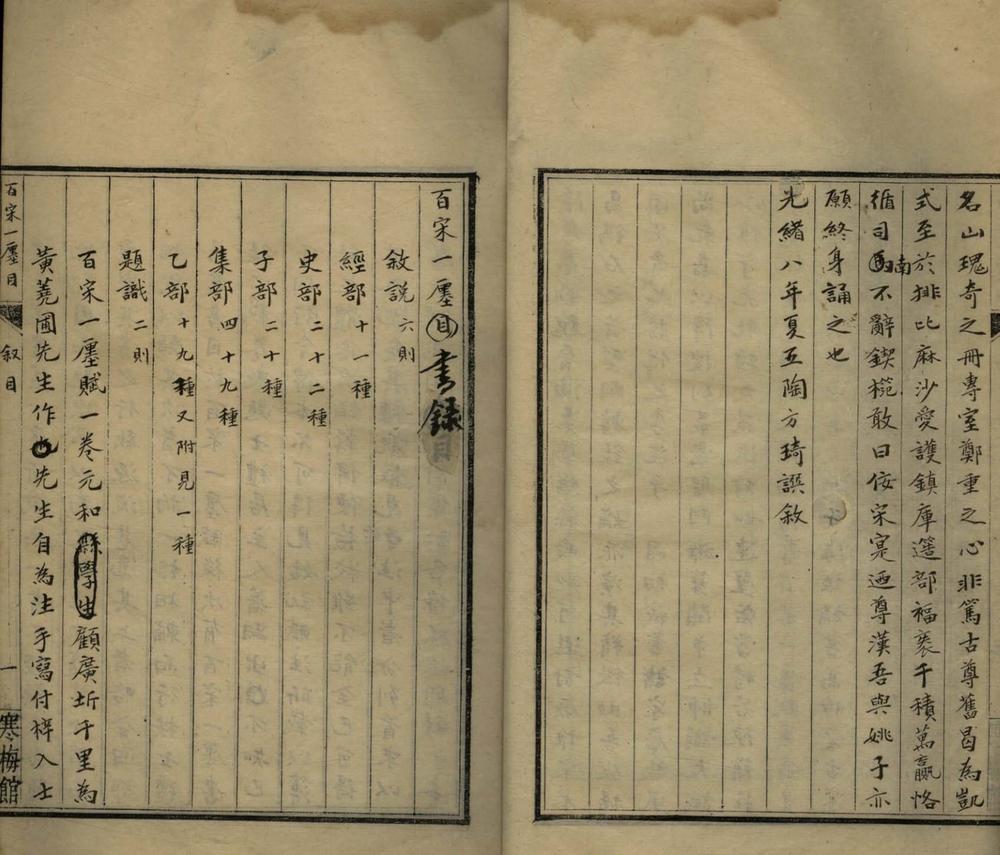 名山瑰奇之冊專室鄭重之心非篤古尊舊曷為凱
式至於排比麻沙愛護鎮庫籩部福裘千積萬贏恪
循司南不辭鍥槧敢曰佞宋寔迺尊漢吾與姚子亦
願終身誦之也
光緒八年夏五陶方琦譔敘
百宋一廛書錄
敘說六則
經部十一種
史部二十二種
子部二十種
集部四十九種
乙部十九種又附見一種
題識二則
百宋一廛賦一卷元和縣學生顧廣圻千里為
黃蕘圃先生作也先生自為注手寫付梓入士
百宋一廛目
敘目
一
寒梅館